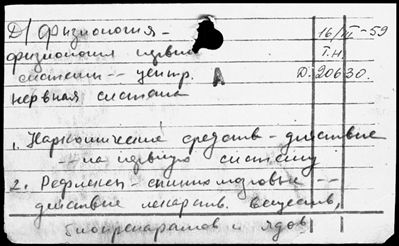 Д/ Физиология - 16/III-59
физиология нервн Т.Н.
системы -- центр. А Д. 20630.
нервная система
1. Наркотические средства - действие
-- на нервную систему
2. Рефлексы - спинномозговые --
действие лекарств. веществ,
биопрепаратов и ядов